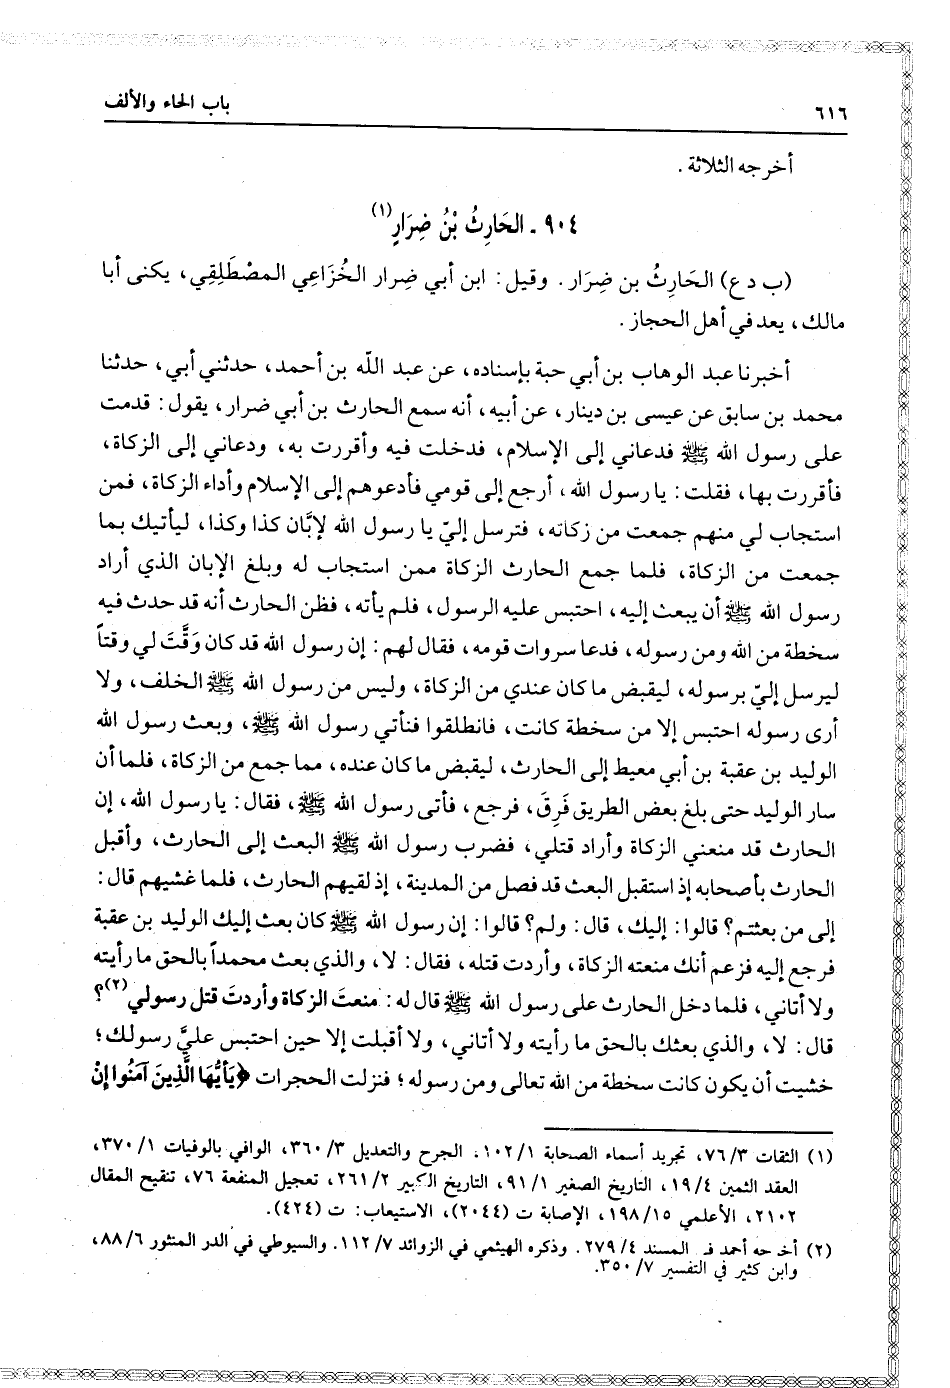 ٦١٦ باب الحاء والألف
أخرجه الثلاثة.
٩٠٤ ـ الحَارِثُ بْنُ ضِرَارٍ(١)
(ب د ع) الحَارِثُ بن ضِرَار. وقيل: ابن أبي ضِرار الخُزَاعِي المصْطَلِقِي، يكنى أبا
مالك، يعد في أهل الحجاز.
أخبرنا عبد الوهاب بن أبي حبة بإسناده، عن عبد اللّه بن أحمد، حدثني أبي، حدثنا
محمد بن سابق عن عيسى بن دينار، عن أبيه، أنه سمع الحارث بن أبي ضرار، يقول: قدمت
على رسول الله ﷺ فدعاني إلى الإسلام، فدخلت فيه وأقررت به، ودعاني إلى الزكاة،
فأقررت بها، فقلت: يا رسول الله، أرجع إلى قومي فأدعوهم إلى الإسلام وأداء الزكاة، فمن
استجاب لي منهم جمعت من زكاته، فترسل إليّ يا رسول الله لإبَّان كذا وكذا، ليأتيك بما
جمعت من الزكاة، فلما جمع الحارث الزكاة ممن استجاب له وبلغ الإبان الذي أراد
رسول الله ﷺ أن يبعث إليه، احتبس عليه الرسول، فلم يأته، فظن الحارث أنه قد حدث فيه
سخطة من الله ومن رسوله، فدعا سروات قومه، فقال لهم: إن رسول الله قد كان وَقَّتَ لي وقتاً
ليرسل إليّ برسوله، ليقبض ما كان عندي من الزكاة، وليس من رسول الله ﷺ الخلف، ولا
أرى رسوله احتبس إلا من سخطة كانت، فانطلقوا فنأتي رسول الله ﷺ، وبعث رسول الله
الوليد بن عقبة بن أبي معيط إلى الحارث، ليقبض ما كان عنده، مما جمع من الزكاة، فلما أن
سار الوليد حتى بلغ بعض الطريق فَرِقَ، فرجع، فأتى رسول الله ﷺ، فقال: يا رسول الله، إن
الحارث قد منعني الزكاة وأراد قتلي، فضرب رسول الله ﷺ البعث إلى الحارث، وأقبل
الحارث بأصحابه إذ استقبل البعث قد فصل من المدينة، إذ لقيهم الحارث، فلما غشيهم قال:
إلى من بعثتم؟ قالوا: إليك، قال: ولم؟ قالوا: إن رسول الله ﷺ كان بعث إليك الوليد بن عقبة
فرجع إليه فزعم أنك منعته الزكاة، وأردت قتله، فقال: لا، والذي بعث محمداً بالحق ما رأيته
ولا أتاني، فلما دخل الحارث على رسول الله ﷺ قال له: منعتَ الزكاة وأردتَ قتل رسولي(٢)؟
قال: لا، والذي بعثك بالحق ما رأيته ولا أتاني، ولا أقبلت إلا حين احتبس عليَّ رسولك؛
خشيت أن يكون كانت سخطة من الله تعالى ومن رسوله؛ فنزلت الحجرات ﴿يَأيُّهَا الَّذِينَ آمَنُوا إنْ
(١) الثقات ٧٦/٣، تجريد أسماء الصحابة ١٠٢/١، الجرح والتعديل ٣٦٠/٣، الوافي بالوفيات ٣٧٠/١،
العقد الثمين ١٩/٤، التاريخ الصغير ٩١/١، التاريخ الكبير ٢٦١/٢، تعجيل المنفعة ٧٦، تنقيح المقال
٢١٠٢، الأعلمي ١٩٨/١٥، الإصابة ت (٢٠٤٤)، الاستيعاب: ت (٤٢٤).
(٢) أخرجه أحمد في المسند ٢٧٩/٤. وذكره الهيثمي في الزوائد ١١٢/٧. والسيوطي في الدر المنثور ٨٨/٦،
وابن كثير في التفسير ٣٥٠/٧.